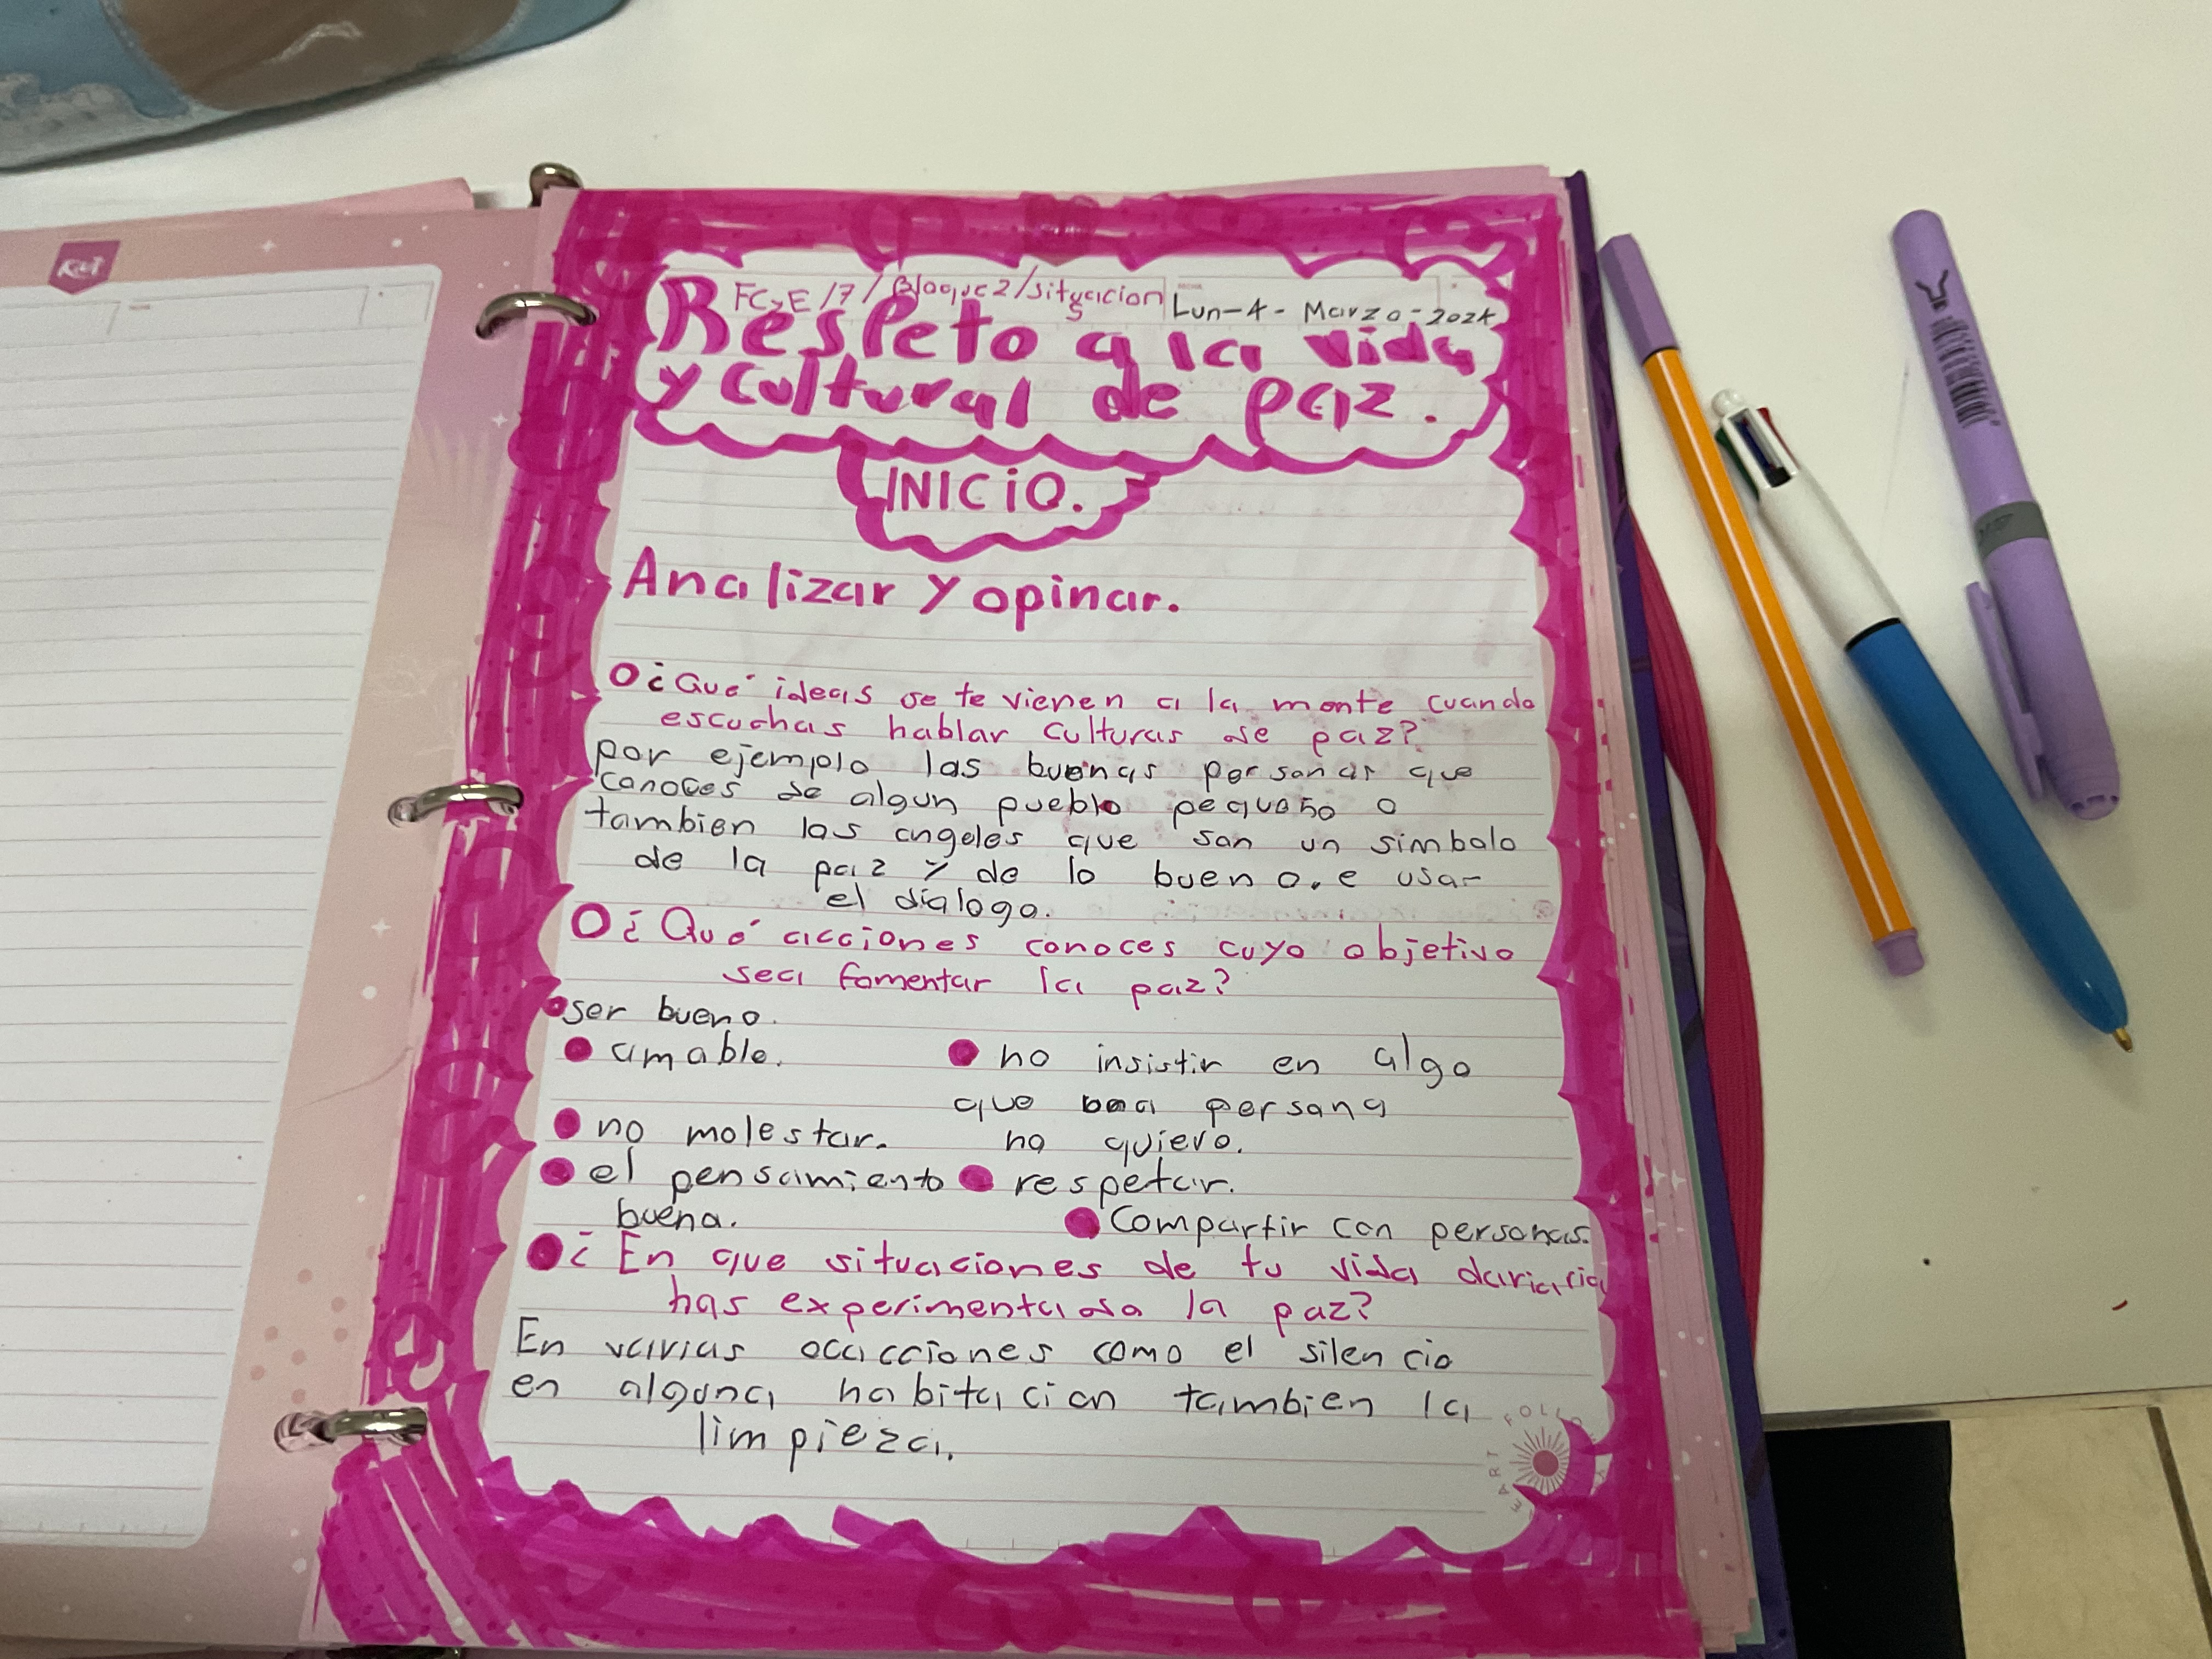 FCyE/7/Bloque2/situacion
5
Lun-4-Marzo-2024
Respeto a la vida
y cultural de paz.
INICIO.
Analizar y opinar.
¿Qué ideas se te vienen a la mente cuando
escuchas hablar culturas de paz?
por ejemplo las buenas personas que
conoces de algun pueblo pequeño o
tambien los angeles que son un simbolo
de la paz y de lo bueno. e usar
el dialogo.
¿Qué acciones conoces cuyo objetivo
sea fomentar la paz?
ser bueno.
amable.
no molestar.
el pensamiento
buena.
no insistir en algo
que persona
no quiero.
respetar.
Compartir con personas.
¿En que situaciones de tu vida
has experimentado la paz?
En varias ocacciones como el silencio
en alguna habitacion tambien la
limpieza.